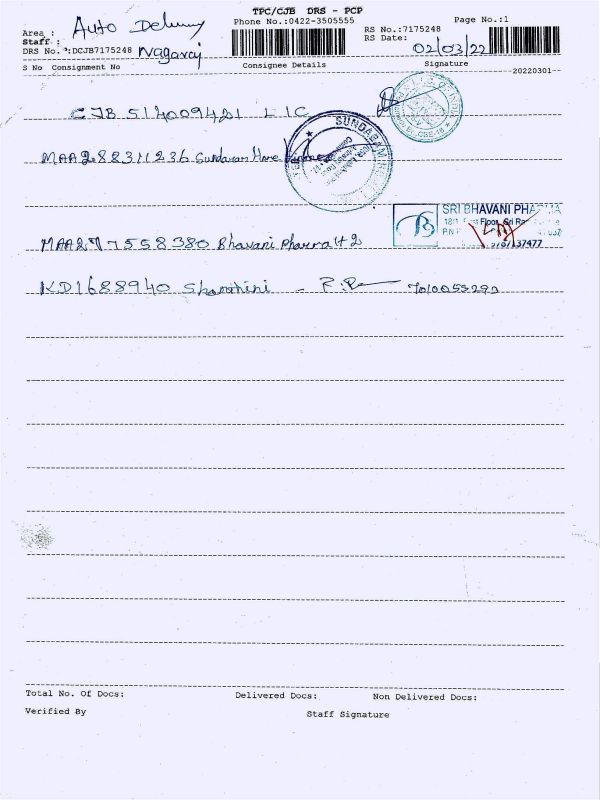 TPC/CJB DRS - PCP
Area : Auto Delivery
Phone No.:0422-3505555
RS No.:7175248
Page No.:1
Staff :
RS Date: 02/03/22
DRS No. :DCJB7175248 Nagaraj
S No Consignment No Consignee Details Signature
20220301--
CJB 514009421 LIC
SUNDARAM
MAA288311236 Sundaram Home
SRI BHAVANI PHARMA
MAA277558380 Bhavani Pharma 42
KD1688940 Sharohini - 7010053292
Total No. Of Docs: Delivered Docs: Non Delivered Docs:
Verified By Staff Signature